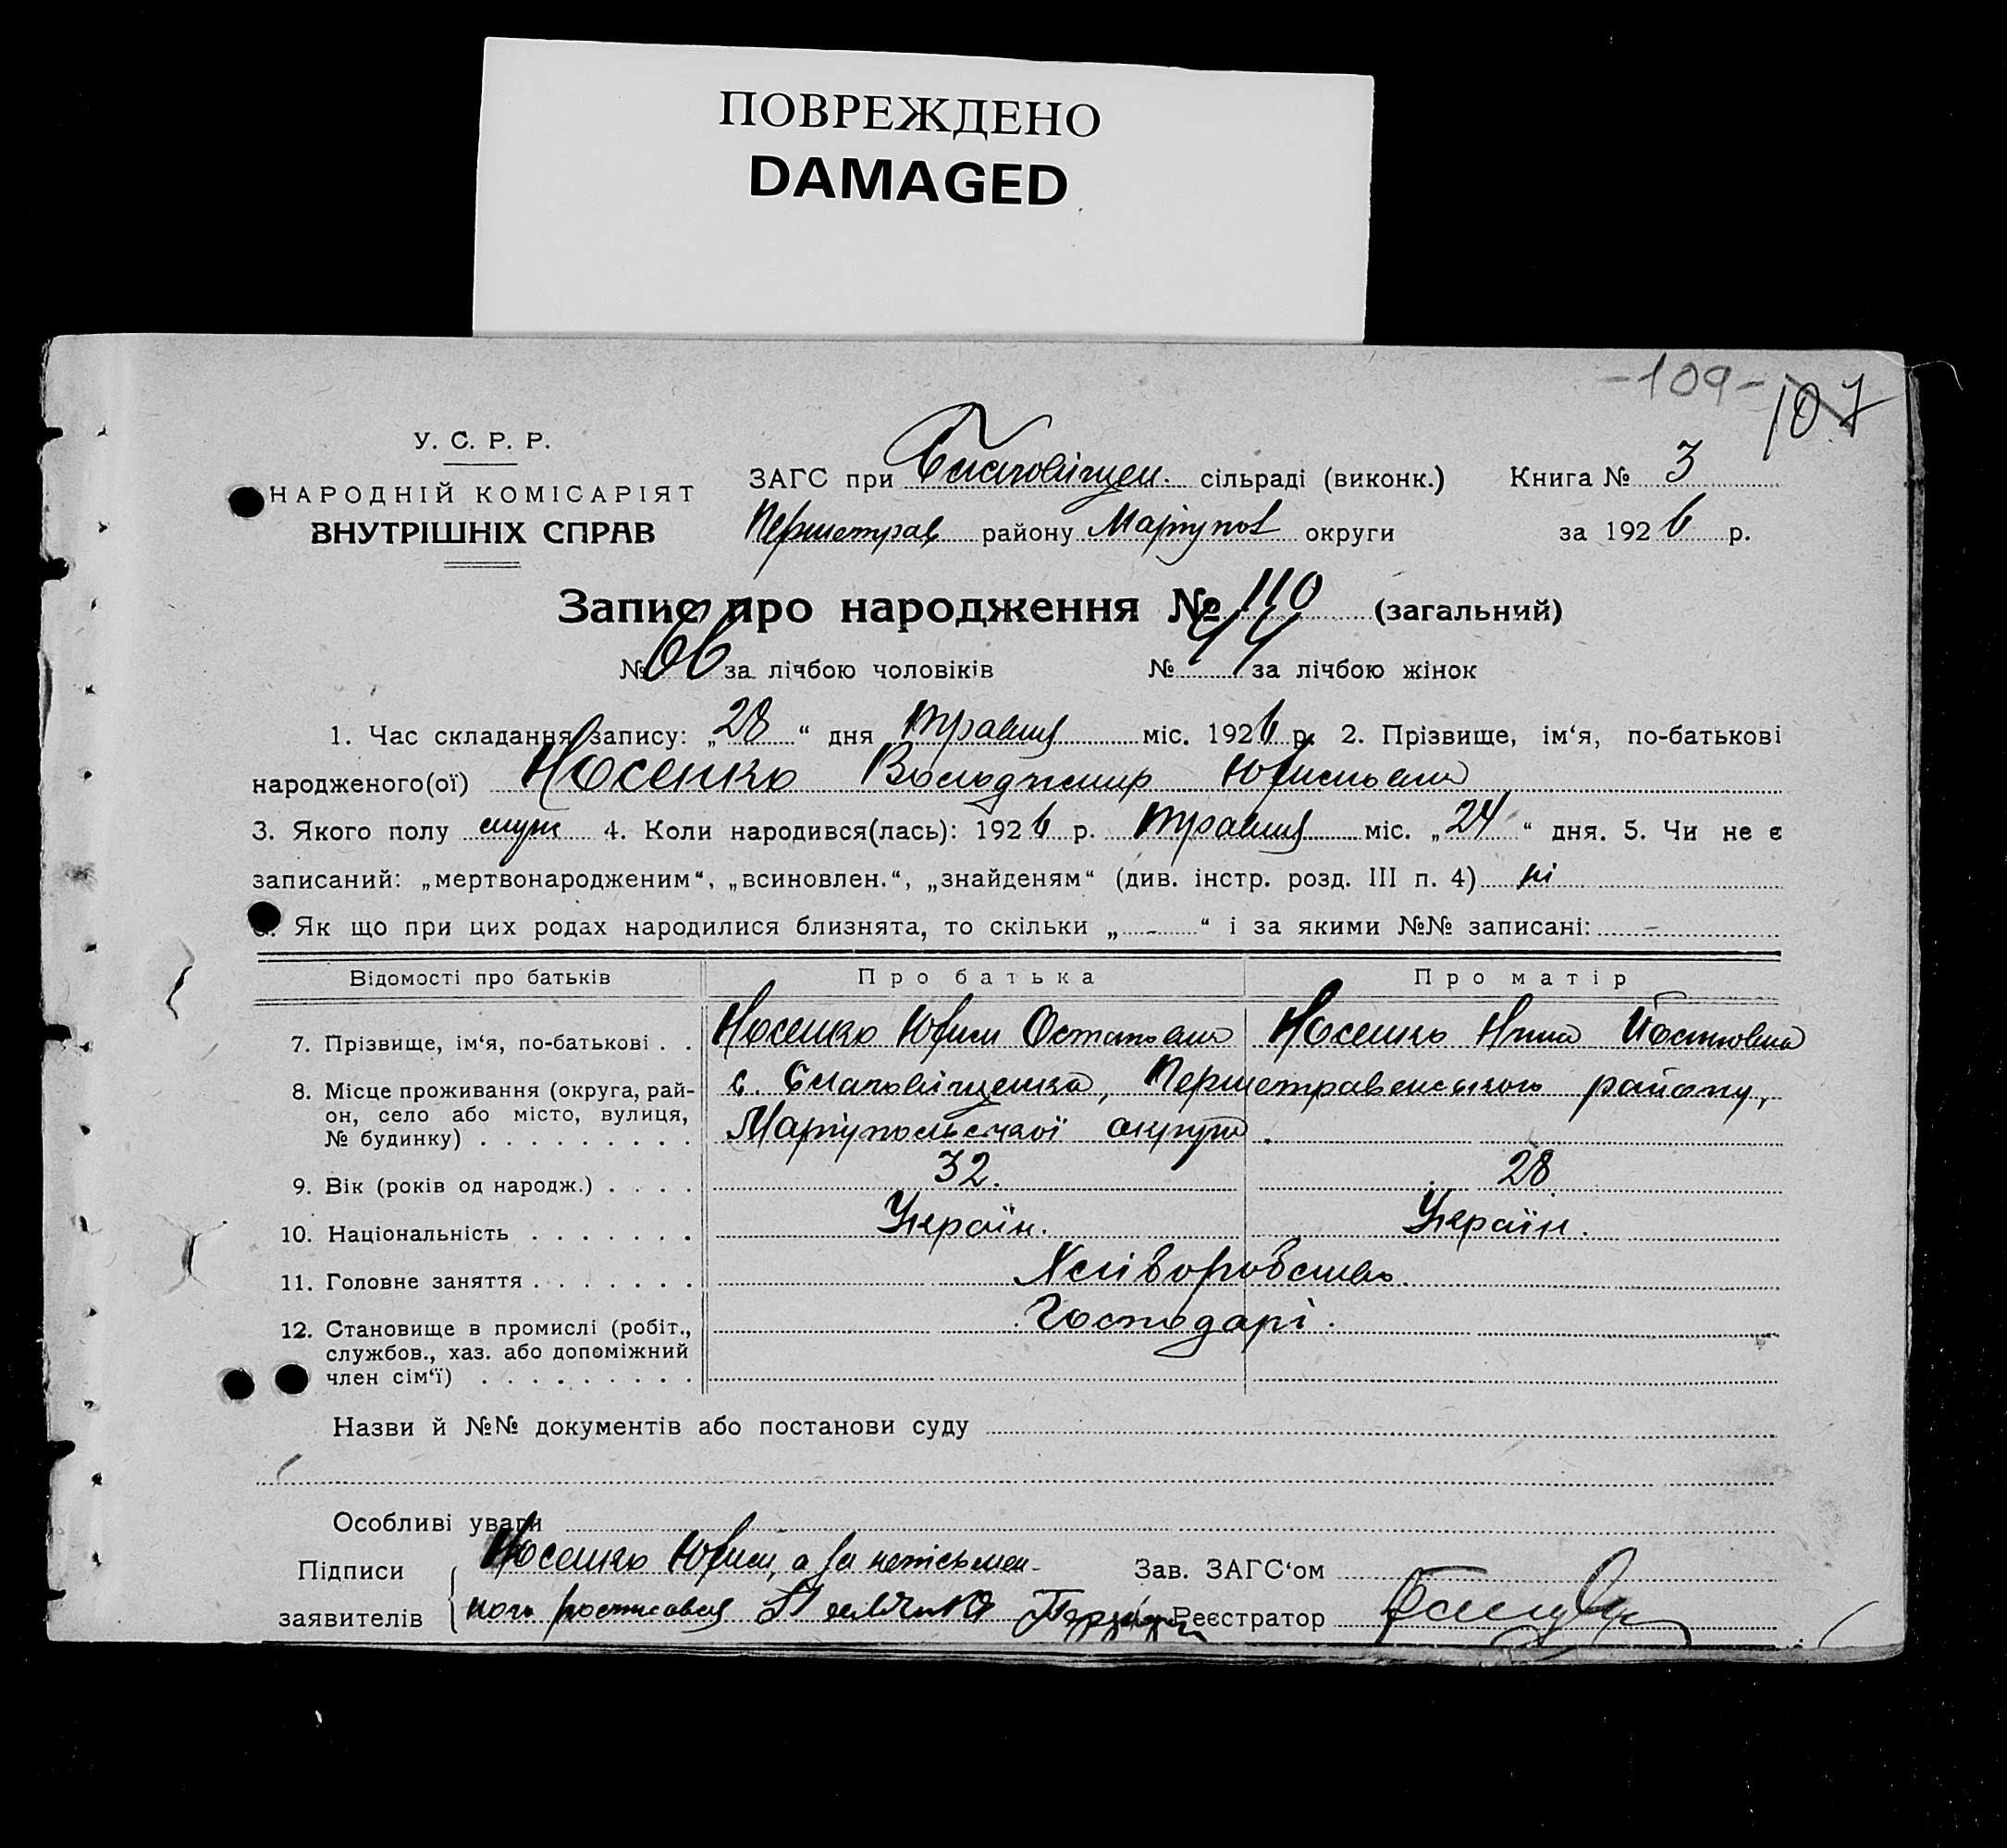 ПОВРЕЖДЕНО
DAMAGED
-109-
107
У. С. Р. Р.
НАРОДНІЙ КОМІСАРІЯТ
ВНУТРІШНІХ СПРАВ
ЗАГС при Благовіщен. сільраді (виконк.) Книга № 3
Першотрав району Маріупол округи за 1926 р.
Запис про народження № 110 (загальний)
№ 66 за лічбою чоловіків № 44 за лічбою жінок
1. Час складання запису: „28“ дня травня міс. 1926 р. 2. Прізвище, ім‘я, по-батькові
народженого(ої) Носенко Володимир
3. Якого полу муж 4. Коли народився(лась): 1926 р. травня міс. „24“ дня. 5. Чи не є
записаний: „мертвонародженим“, „всиновлен.“, „знайденям“ (див. інстр. розд. III п. 4) ні
6. Як що при цих родах народилися близнята, то скільки „ - “ і за якими №№ записані: -
Відомості про батьків Про батька Про матір
7. Прізвище, ім‘я, по-батькові . . Носенко Юхим Остапович Носенко
8. Місце проживання (округа, рай- с. Благовіщенка, Першотравенського району,
он, село або місто, вулиця,
№ будинку) . . . . . . . . . Маріупольської округи.
9. Вік (років од народж.) . . . . 32. 28
10. Національність . . . . . . . Україн. Україн.
11. Головне заняття . . . . . . . Хліборобство
12. Становище в промислі (робіт., Господарі.
службов., хаз. або допоміжний
член сім‘ї) . . . . . . . . .
Назви й №№ документів або постанови суду
Особливі уваги
Підписи Носенко Юхим, а за неписьмен- Зав. ЗАГС‘ом
заявителів ного росписався Реєстратор